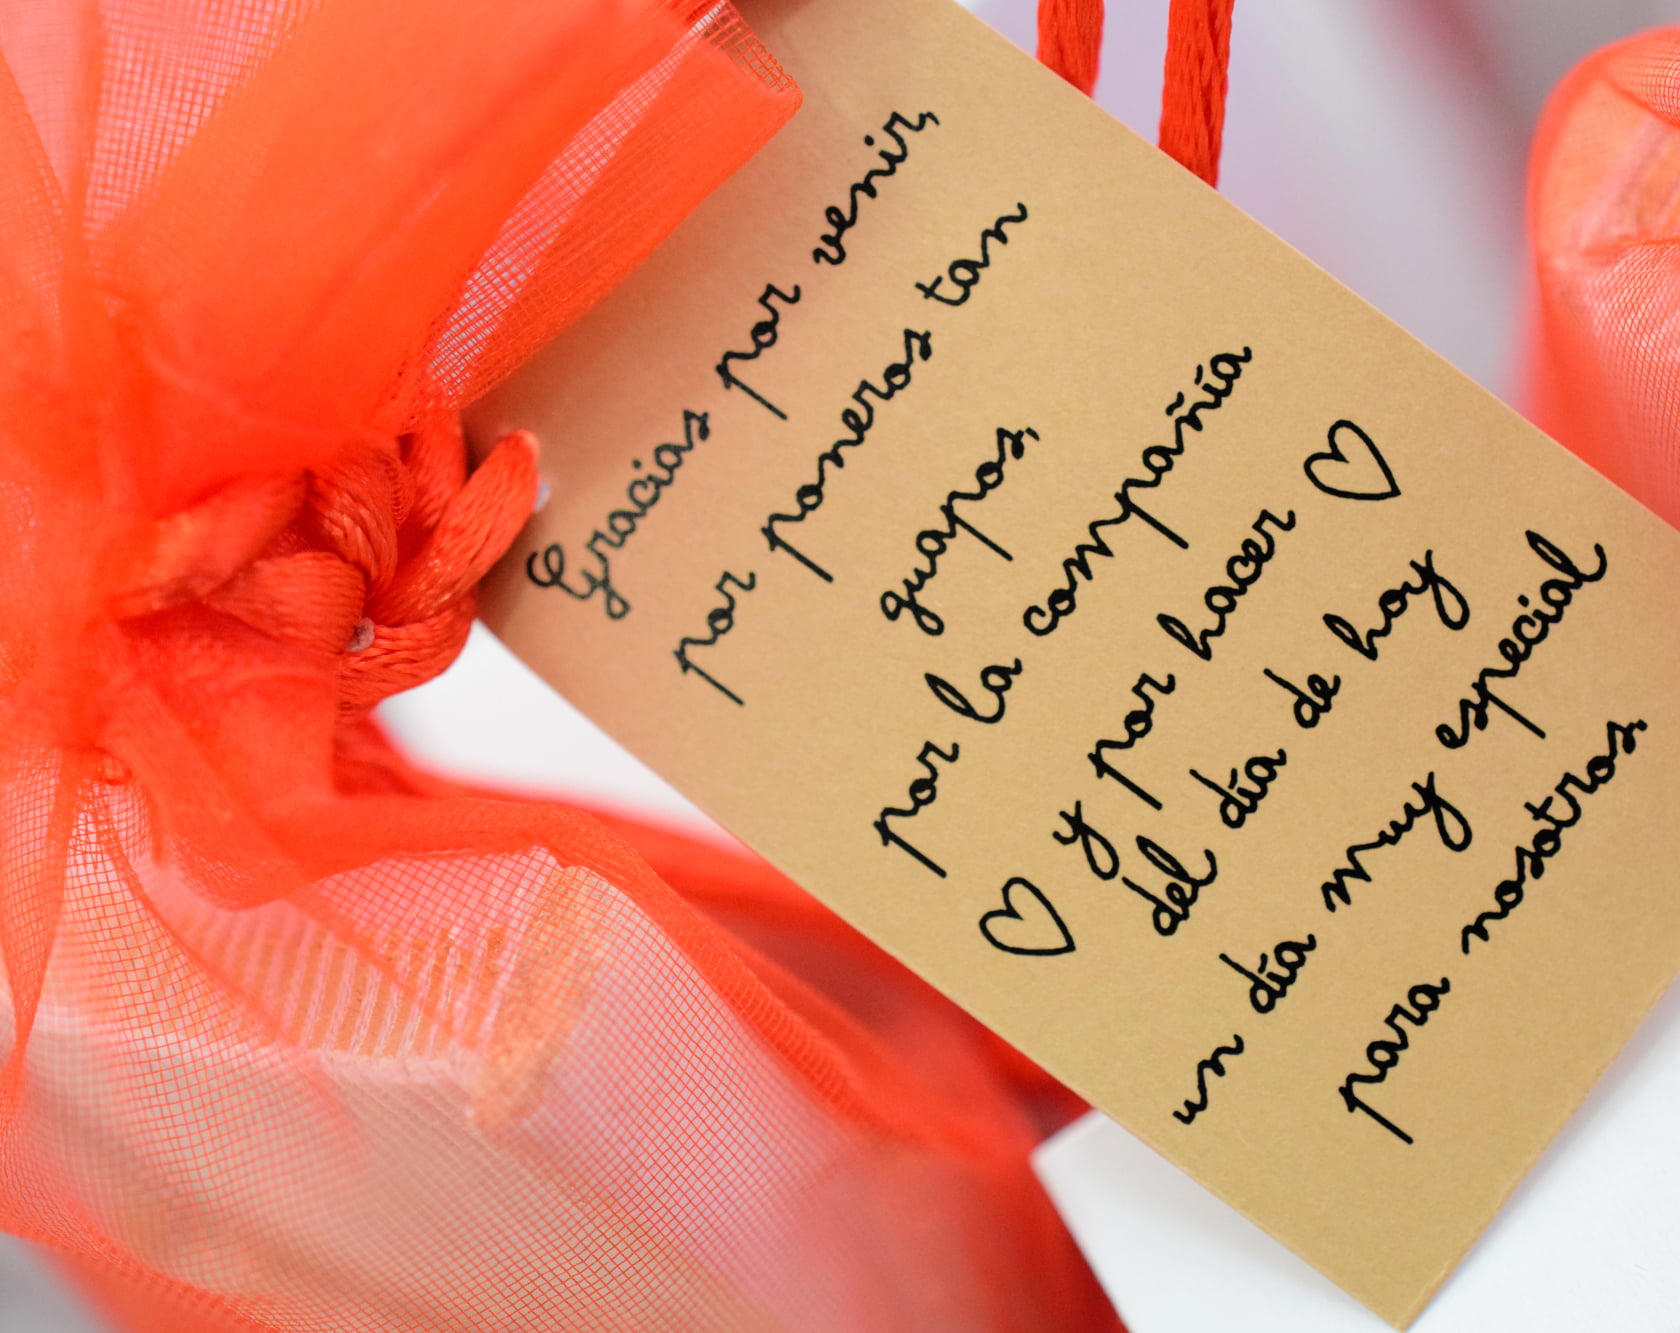 Gracias por venir,
por poneros tan
guapos,
por la compañía
♡ y por hacer ♡
del día de hoy
un día muy especial
para nosotros.